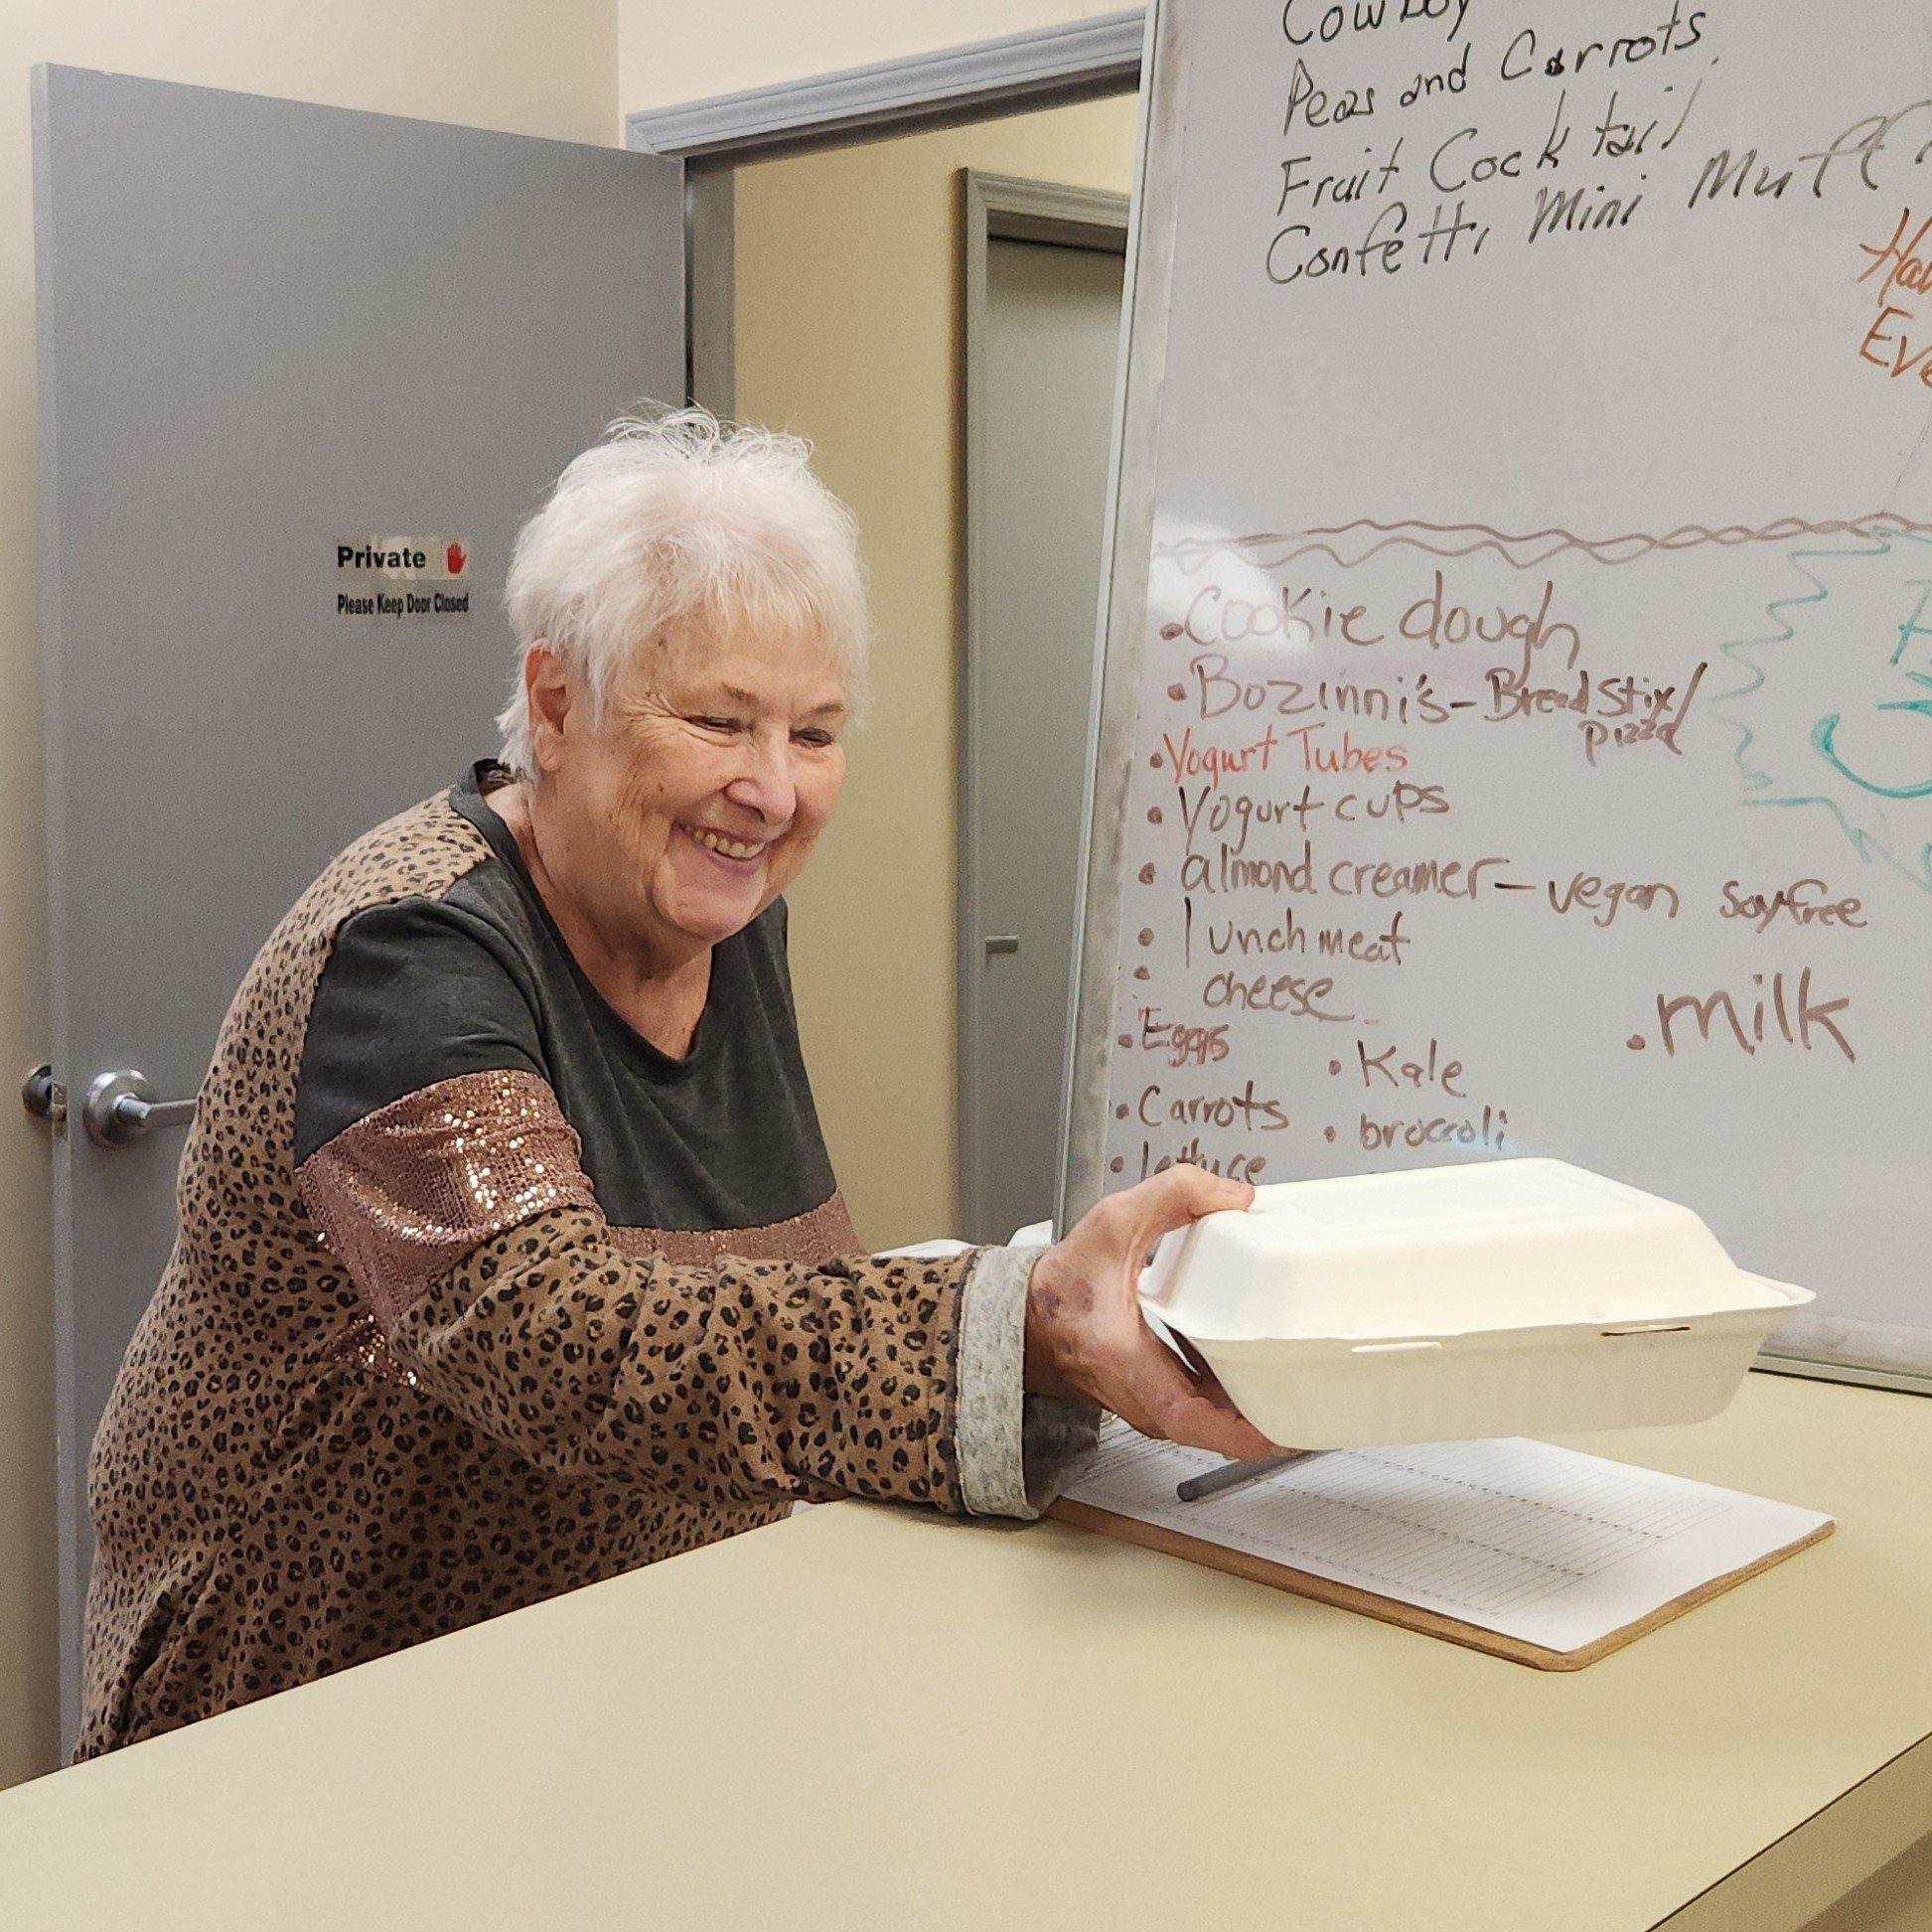 Cowboy
Peas and Carrots
Fruit Cocktail
Confetti Mini
Private
Please Keep Door Closed
• Cookie dough
• Bozinni's - Bread Stix/
pizza
• Yogurt Tubes
• Yogurt cups
• almond creamer - vegan soyfree
• lunch meat
• cheese
• milk
• Eggs
• Kale
• Carrots
• broccoli
• lettuce